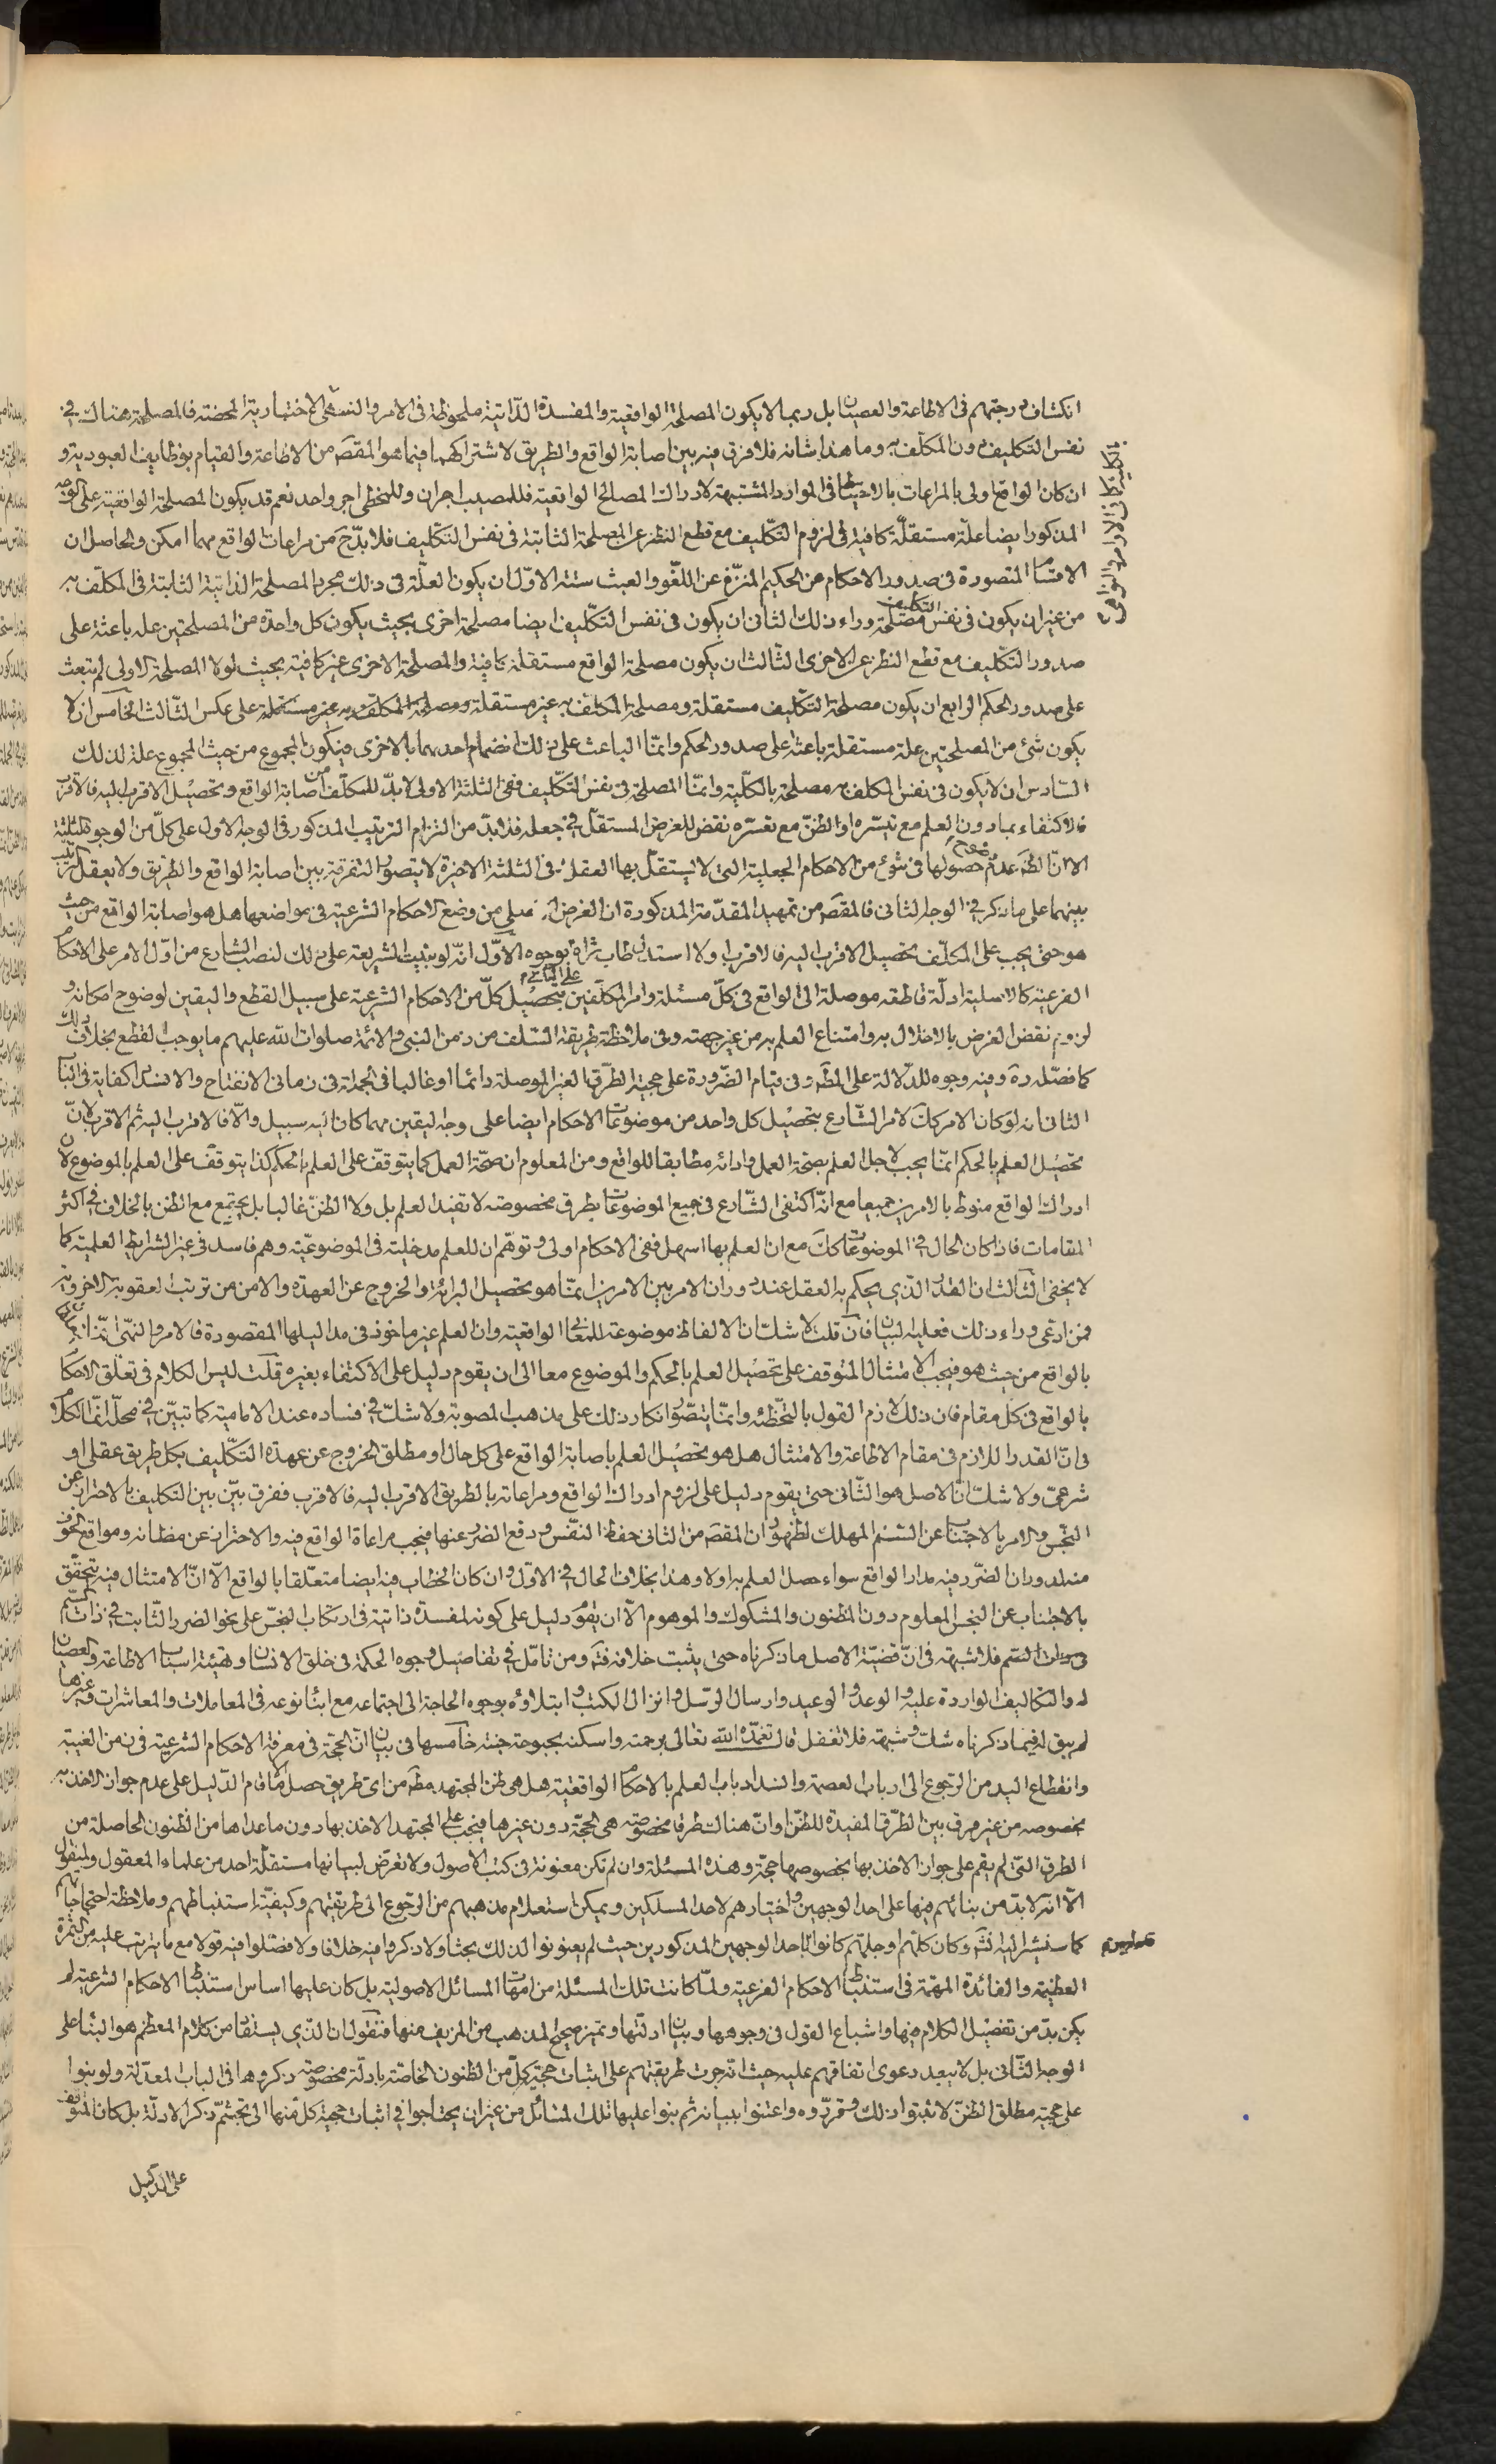 انكشاف درجتهم فى الاطاعة والعصيان بل ربما لا يكون المصلحة الواقعية والمفسدة الذاتية ملحوظة فى الامر والنهى الاختبارية المحضة فالمصلحة هناك فى
نفس التكليف دون المكلف به وما هذا شانه فلا فرق فيه بين اصابة الواقع والطريق لاشتراكهما فيما هو المقصَ من الاطاعة والقيام بوظايف العبودية و
ان كان الواقع اولى بالمراعات بالاحتياط فى الموارد المشتبهة لادراك المصالح الواقعية فللمصيب اجران وللمخطى اجر واحد نعم قد يكون المصلحة الواقعية على الوجه
المذكور ايضا علّة مستقلّة كافية فى لزوم التكليف مع قطع النظر عن المصلحة الثابتة فى نفس التكليف فلا بدّ ح من مراعات الواقع مهما امكن والحاصل ان
الاقسام المتصورة فى صدور الاحكام من الحكيم المنزّه عن اللغو والعبث ستة الاوّل ان يكون العلّة فى ذلك مجرد المصلحة الذاتية الثابتة فى المكلّف به
من غير ان يكون فى نفس التكليف مصلحة وراء ذلك الثانى ان يكون فى نفس التكليف ايضا مصلحة اخرى بحيث يكون كل واحدة من المصلحتين علة باعثة على
صدور التكليف مع قطع النظر عن الاخرى الثالث ان يكون مصلحة الواقع مستقلة كافية والمصلحة الاخرى غير كافية بحيث لولا المصلحة الاولى لم تبعث
على صدور الحكم الرابع ان يكون مصلحة التكليف مستقلة ومصلحة المكلف به غير مستقلة على عكس الثالث الخامس ان لا
يكون شئ من المصلحتين علة مستقلة باعثة على صدور الحكم وانّما الباعث على ذلك انضمام احديهما بالاخرى فيكون المجموع من حيث المجموع علة لذلك
السادس ان لا يكون فى نفس المكلف به مصلحة بالكلّية وانّما المصلحة فى نفس التكليف ففى الثلثة الاولى لا بدّ للمكلّف من اصابة الواقع وتحصيل الاقرب اليه فالاقرب
فالاكتفاء بما دون العلم مع تيسّره او الظنّ مع تعسّره نقض للغرض المستقلّ فى جعله فلا بدّ من التزام الترتيب المذكور فى الوجه الاول على كلّ من الوجوه الثلثة
الا انّ الظَ عدم حصولها فى شئ من الاحكام الجعلية التى لا يستقلّ بها العقل وفى الثلثة الاخيرة لا يتصور التفرقة بين اصابة الواقع والطريق ولا يعقل ترتيب
بينهما على ما ذكر فى الوجه الثانى فالمقصَ من تمهيد المقدّمة المذكورة ان الغرض الاصلى من وضع الاحكام الشرعية فى مواضعها هل هو اصابة الواقع من حيث
هو حتى يجب على المكلّف تحصيل الاقرب اليه فالاقرب او لا استدل طاب ثراه بوجوه الاوّل انّه لو بنيت الشريعة على ذلك لنصب الشارع من اوّل الامر على الاحكام
الفرعية كالاصلية ادلّة قاطعة موصلة الى الواقع فى كلّ مسئلة وامر المكلّفين بتحصيل كلّ من الاحكام الشرعية على سبيل القطع واليقين لوضوح امكانه و
لزوم نقض الغرض بالاخلال به وامتناع العلم به من غير جهته وفى ملاحظة طريقة السلف من زمن النبى والائمة صلوات الله عليهم ما يوجب القطع بخلاف ذلك
كما فصّله ره وفيه وجوه للدلالة على المطَ وفى قيام الضّرورة على حجية الطرق الغير الموصلة دائما او غالبا فى الجملة فى زمانى الانفتاح والانسداد كفاية فى الباب
الثانى انه لو كان الامر كك لامر الشارع بتحصيل كل واحد من موضوعات الاحكام ايضا على وجه اليقين مهما كان اليه سبيل والّا فالاقرب اليه ثم الاقرب لانّ
تحصيل العلم بالحكم انّما يجب لاجل العلم بصحّة العمل وادائه مطابقا للواقع ومن المعلوم ان صحّة العمل كما يتوقّف على العلم بالحكم كذا يتوقف على العلم بالموضوع لان
ادراك الواقع منوط بالامرين جميعا مع انّه اكتفى الشّارع فى جميع الموضوعات بطرق مخصوصة لا تفيد العلم بل ولا الظنّ غالبا بل يجتمع مع الظن بالخلاف فى اكثر
المقامات فاذا كان الحال فى الموضوعات كك مع ان العلم بها اسهل ففى الاحكام اولى وتوهّم ان للعلم مدخلية فى الموضوعيّة وهم فاسد فى غير الشرايط العلمية كما
لا يخفى الثالث ان القدر الذى يحكم به العقل عند دوران الامر بين الامرين انّما هو تحصيل البرائة والخروج عن العهدة والامن من ترتب العقوبة الاخروية
فمن ادعى وراء ذلك فعليه البيان فان قلت لا شك ان الالفاظ موضوعة للمعانى الواقعية وان العلم غير ماخوذ فى مداليلها المقصودة فالامر والنهى انّما يتعلّقان
بالواقع من حيث هو فيجب الامتثال المتوقف على تحصيل العلم بالحكم والموضوع معا الى ان يقوم دليل على الاكتفاء بغيره قلت ليس الكلام فى تعلّق الاحكام
بالواقع فى كل مقام فان ذلك لازم القول بالتخطئه وانّما يتصوّر انكار ذلك على مذهب المصوبة ولا شكّ فى فساده عند الامامية كما تبيّن فى محلّه انّما الكلام
فى انّ القدر اللازم فى مقام الاطاعة والامتثال هل هو تحصيل العلم باصابة الواقع على كل حال او مطلق الخروج عن عهدة التكليف بكل طريق عقلى او
شرعىّ ولا شك انّ الاصل هو الثّانى حتى يقوم دليل على لزوم ادراك الواقع ومراعاته بالطريق الاقرب اليه فالاقرب ففرق بيّن بين التكليف بالاحتراز عن
النجس والامر بالاجتناب عن السّم المهلك لظهور ان المقصَ من الثانى حفظ النفس ودفع الضرر عنها فيجب مراعاة الواقع فيه والاحتراز عن مظانه ومواقع الخوف
منه لدوران الضّرر فيه مدار الواقع سواء حصل العلم به اولا وهذا بخلاف الحال فى الاوّل وان كان الخطاب فيه ايضا متعلّقا بالواقع الّا انّ الامتثال فيه يتحقّق
بالاجتناب عن النجس المعلوم دون المظنون والمشكوك والموهوم الّا ان يقوم دليل على كونه لمفسدة ذاتية فى ارتكاب النجس على نحو الضرر الثّابت فى ذات السّم
فلا شبهة فى انّ قضيّة الاصل ما ذكرناه حتى يثبت خلافه فتَم ومن تامّل فى تفاصيل وجوه الحكمة فى خلق الانسان وتهيئة اسباب الاطاعة والعصيان
له والتكاليف الواردة عليه والوعد والوعيد وارسال الرسل وانزال الكتب وابتلاؤه بوجوه الحاجة الى اجتماعه مع ابناء نوعه فى المعاملات والمعاشرات وغيرها
لم يبق له فيما ذكرناه شك وشبهة فلا تغفل قال تغمّده الله تعالى برحمته واسكنه بحبوحة جنته خامسها فى بيان انّ الحجّة فى معرفة الاحكام الشرعية فى زمن الغيبة
وانقطاع اليد من الرجوع الى ارباب العصمة وانسداد باب العلم بالاحكام الواقعية هل هى ظن المجتهد مطَ من اى طريق حصل الا ما قام الدّليل على عدم جواز الاخذ به
بخصوصه من غير فرق بين الطّرق المفيدة للظنّ او انّ هناك طرقا مخصوصة هى الحجّة دون غيرها فيجب على المجتهد الاخذ بها دون ما عداها من الظنون الحاصلة من
الطرق التى لم يقم على جواز الاخذ بها بخصوصها حجّة وهذه المسئلة وان لم تكن معنونة فى كتب الاصول ولا تعرّض لبيانها مستقلّة احد من علماء المعقول والمنقول
الّا انّه لا بدّ من بنائهم فيها على احد الوجهين واختيارهم لاحد المسلكين ويمكن استعلام مذهبهم من الرجوع الى طريقتهم وكيفيّة استنباطهم وملاحظة احتجاجاتهم
كما سنشير اليه انشَ وكان كلّهم او جلّهم كانوا باحد الوجهين المذكورين حيث لم يعنونوا لذلك بحثا ولا ذكروا فيه خلافا ولا فصّلوا فيه قولا مع ما يترتب عليه من الثمرة
العظيمة والفائدة المهمّة فى استنباط الاحكام الفرعية ولمّا كانت تلك المسئلة من امّهات المسائل الاصولية بل كان عليها اساس استنباط الاحكام الشرعية لم
يكن بدّ من تفصيل الكلام فيها واشباع القول فى وجوهها وبيان ادلّتها وتميز صحيح المذهب من المزيف منها فنقول ان الذى يستفاد من كلام المعظم هو البناء على
الوجه الثّانى بل لا يبعد دعوى اتفاقهم عليه حيث انّه جرت طريقتهم على اثبات حجيّة كلّ من الظنون الخاصّة بادلّة مخصوصة ذكروها فى الباب المعدّ له ولو بنوا
على حجية مطلق الظنّ لاثبتوا ذلك وقرّروه واعتنوا ببيانه ثم بنوا عليها تلك المسائل من غير ان يحتاجوا فى اثبات حجية كل منها الى تجشّم ذكر الادلّة بل كان المتوقّف
على الدليل